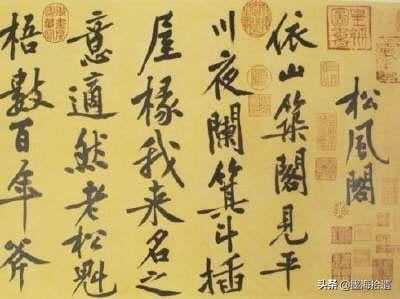 松風閣
依山築閣見平
川夜闌箕斗插
屋椽我来名之
意適然老松魁
梧數百年斧
头条 @墨海拾遗